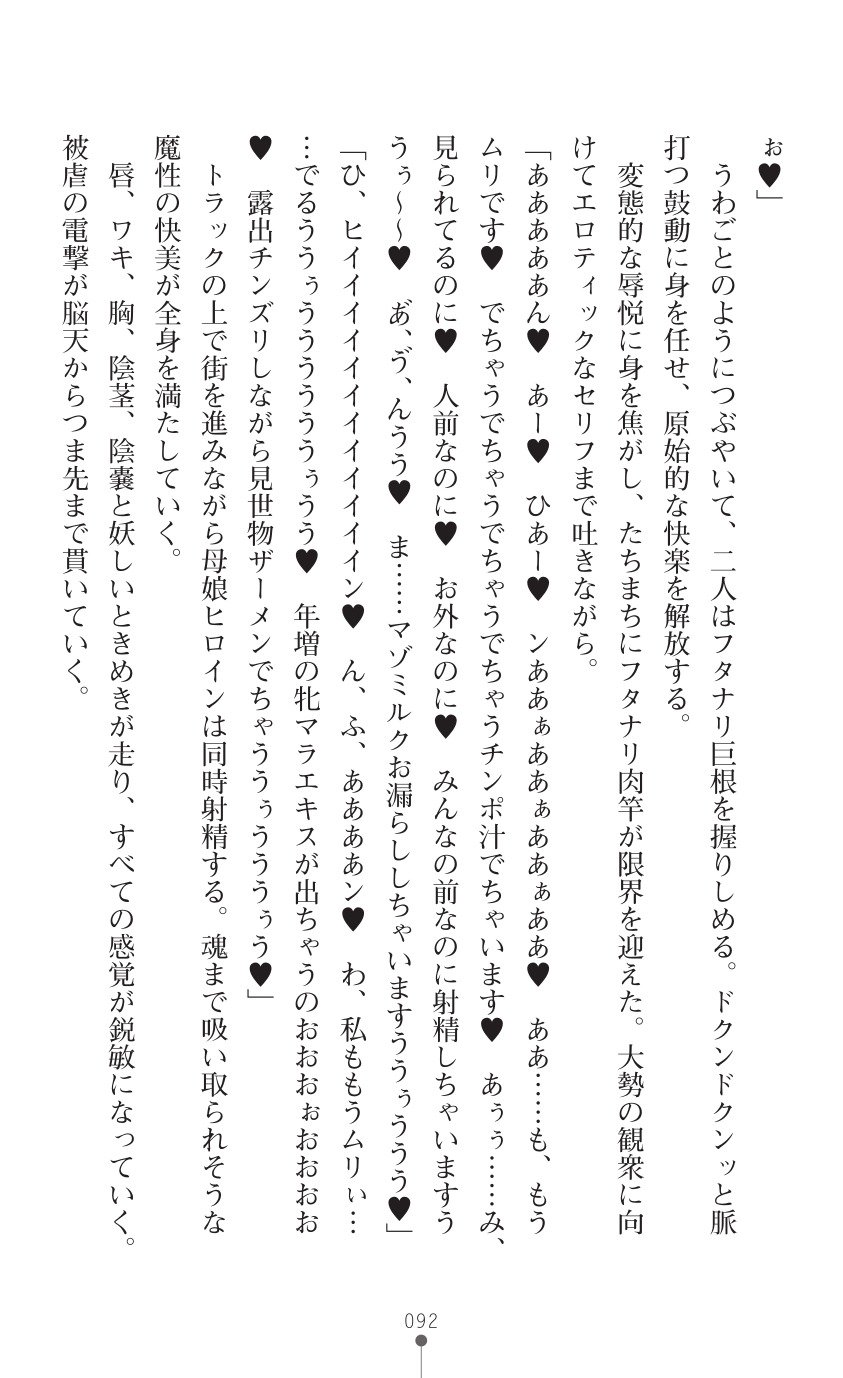 ぉ♥」
うわごとのようにつぶやいて、二人はフタナリ巨根を握りしめる。ドクンドクンッと脈
打つ鼓動に身を任せ、原始的な快楽を解放する。
変態的な辱悦に身を焦がし、たちまちにフタナリ肉竿が限界を迎えた。大勢の観衆に向
けてエロティックなセリフまで吐きながら。
「ああああああん♥　あー♥　ひあー♥　ンああぁああぁああぁああ♥　ああ……も、もう
ムリです♥　でちゃうでちゃうでちゃうでちゃうチンポ汁でちゃいます♥　あぅぅ……み、
見られてるのに♥　人前なのに♥　お外なのに♥　みんなの前なのに射精しちゃいますう
うぅ～～♥　あ゛、ゔ、んうう♥　ま……マゾミルクお漏らししちゃいますううぅううう♥」
「ひ、ヒイイイイイイイイイイイン♥　ん、ふ、ああああン♥　わ、私ももうムリぃ…
…でるううぅうううううううぅうう♥　年増の牝マラエキスが出ちゃうのおおおぉおおおお
♥　露出チンズリしながら見世物ザーメンでちゃううぅうううぅう♥」
トラックの上で街を進みながら母娘ヒロインは同時射精する。魂まで吸い取られそうな
魔性の快美が全身を満たしていく。
唇、ワキ、胸、陰茎、陰嚢と妖しいときめきが走り、すべての感覚が鋭敏になっていく。
被虐の電撃が脳天からつま先まで貫いていく。
092